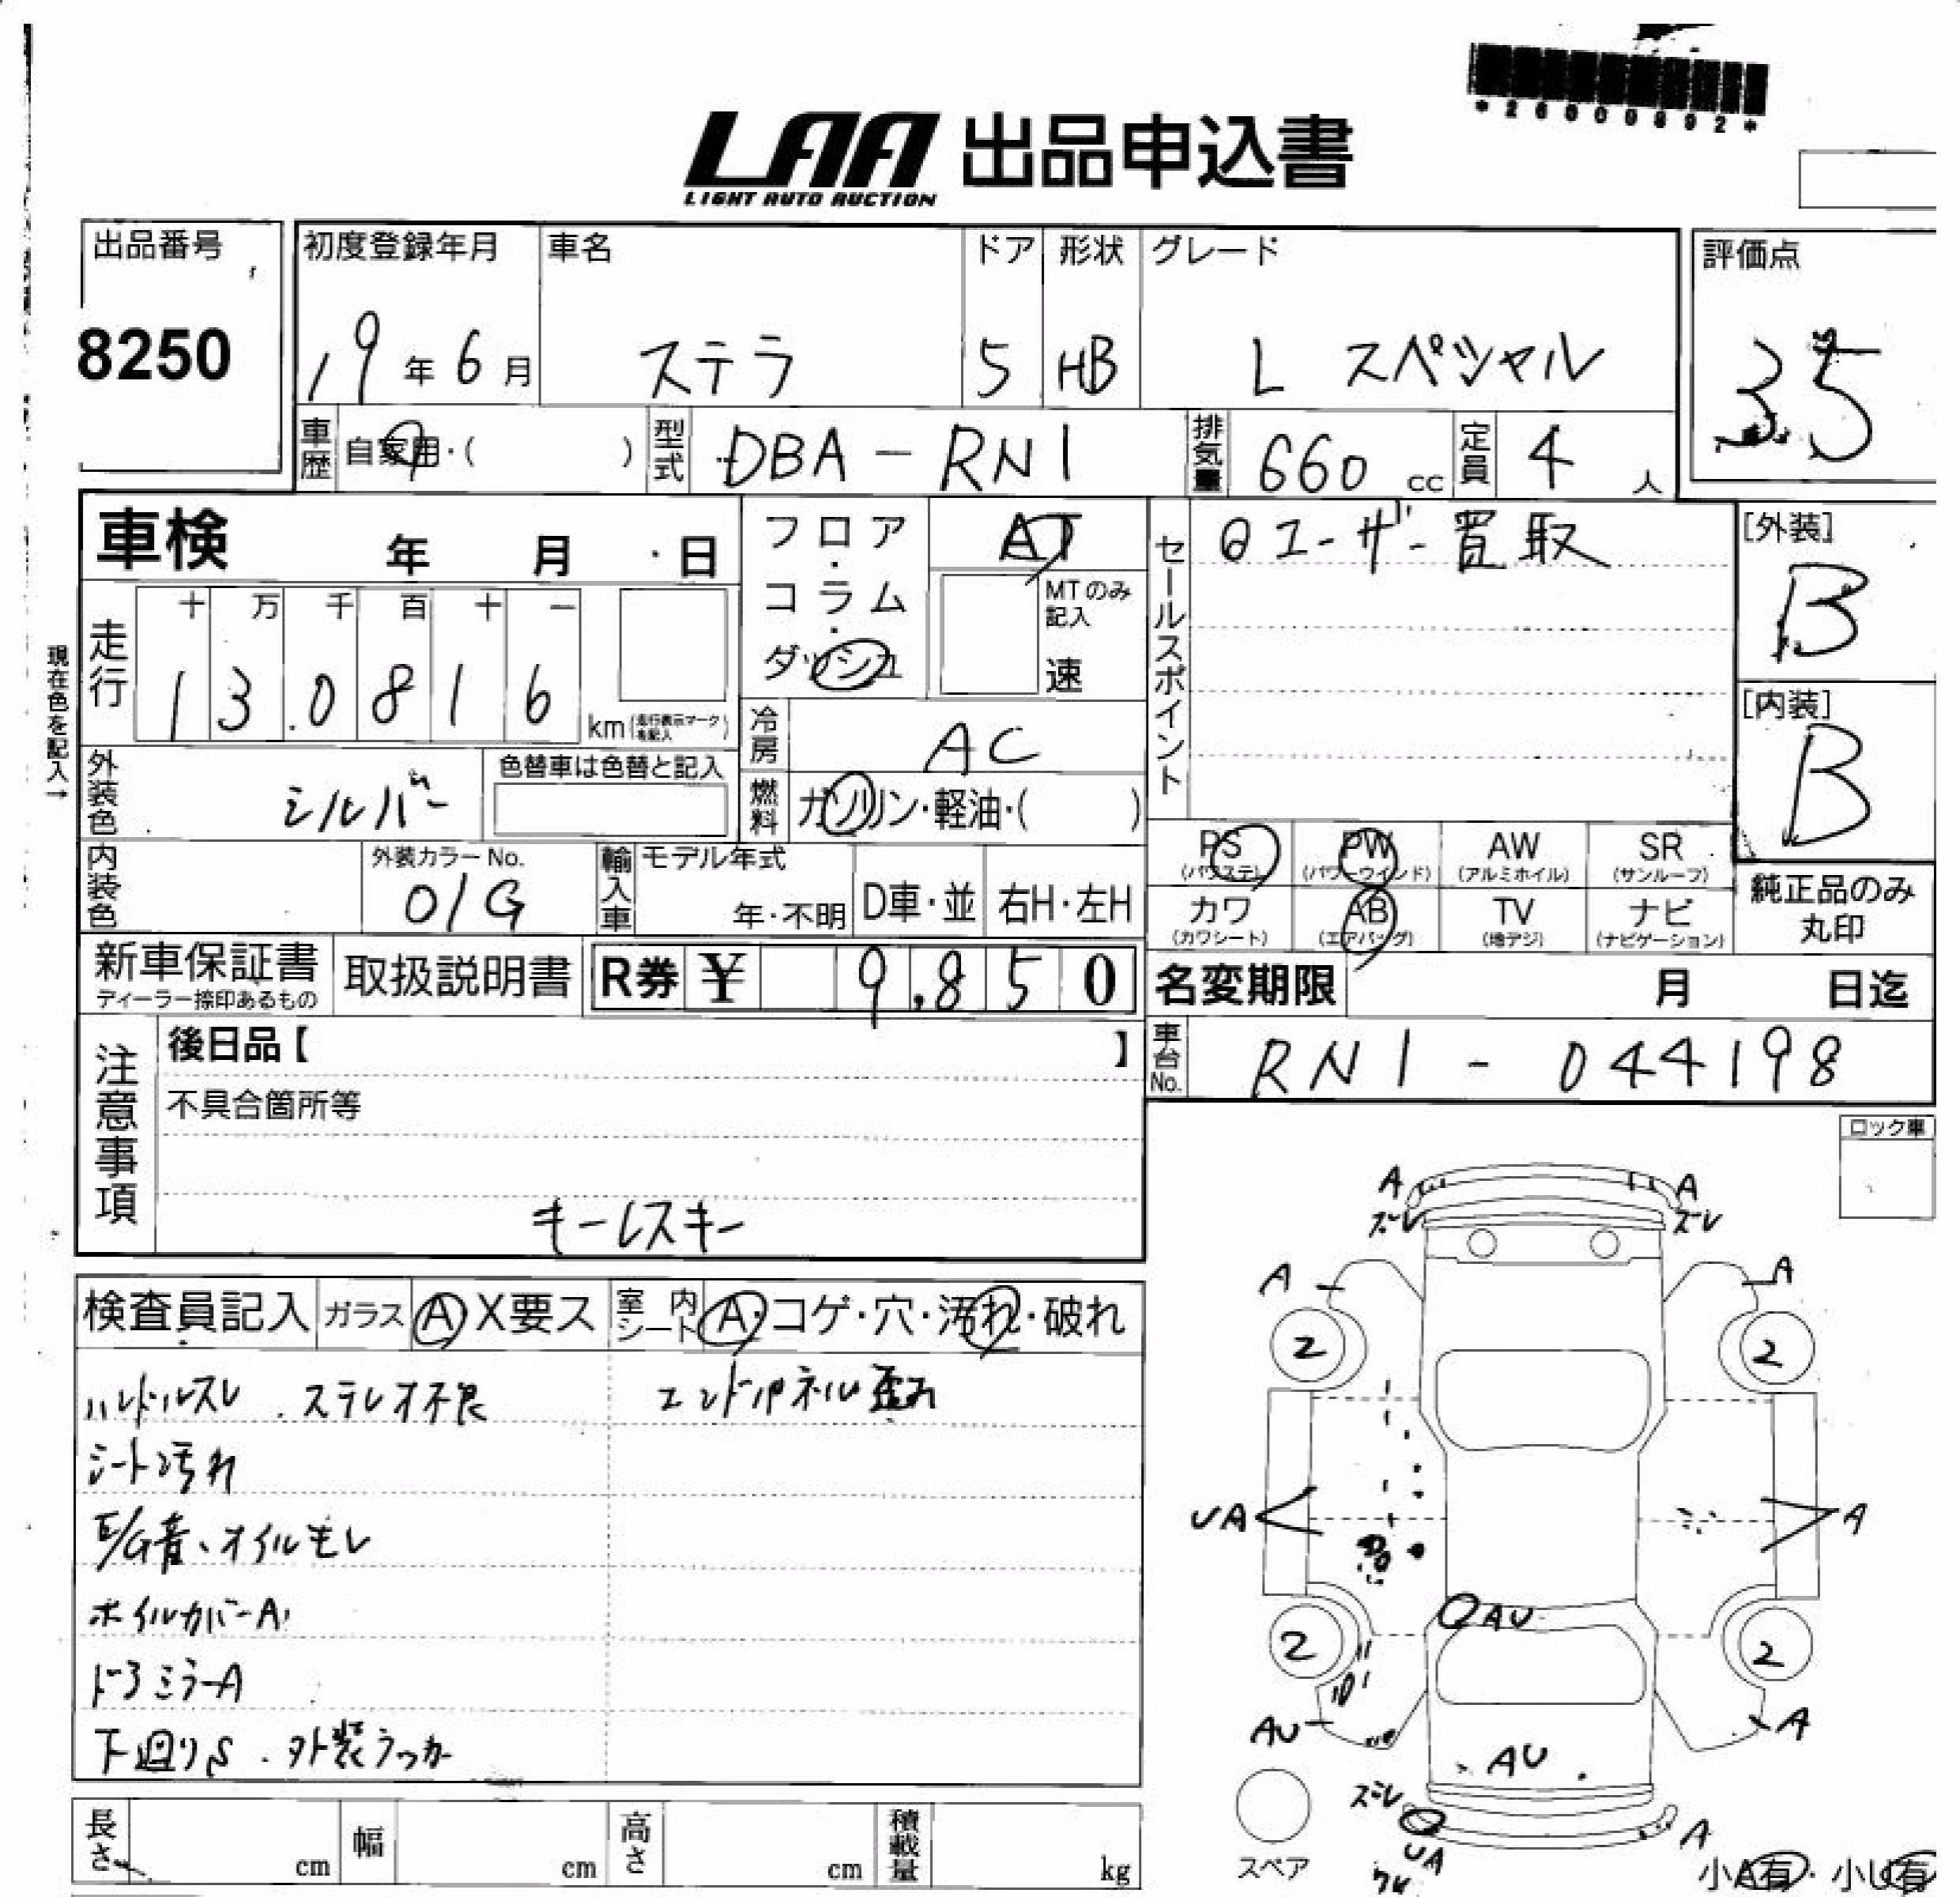 *26000892*
LAA 出品申込書
LIGHT AUTO AUCTION
出品番号
8250
初度登録年月
19年6月
車名
ステラ
ドア
5
形状
HB
グレード
L スペシャル
評価点
3.5
車歴 自家用・( )
型式 DBA-RN1
排気量 660 cc
定員 4 人
車検 年 月 日
フロア・コラム・ダッシュ
AT
MTのみ記入
速
セールスポイント
ユーザー買取
[外装]
B
[内装]
B
現在色を記入→
走行
十 万 千 百 十 一
1 3 0 8 1 6
km(走行表示マークを記入)
冷房 AC
燃料 ガソリン・軽油・( )
外装色 シルバー
色替車は色替と記入
内装色
外装カラーNo.
01G
輸入車
モデル年式
年・不明
D車・並
右H・左H
PS (パワステ)
PW (パワーウインド)
AW (アルミホイル)
SR (サンルーフ)
カワ (カワシート)
AB (エアバッグ)
TV (地デジ)
ナビ (ナビゲーション)
純正品のみ丸印
新車保証書
ディーラー捺印あるもの
取扱説明書
R券 ¥ 9,850
名変期限 月 日迄
車台No. RN1-044198
注意事項
後日品【 】
不具合箇所等
キーレスキー
ロック車
検査員記入 ガラス A X要ス 室内シート A・コゲ・穴・汚れ・破れ
ハンドルスレ.ステレオ不良 エンドパネル歪み
シート汚れ
E/G音、オイルモレ
ホイルカバーA
ドアミラーA
下廻りS.外装ラッカー
A A
ズレ ズレ
A A
2 2
UA A
AU
2 2
AU A
AU
ズレ
UA
A
ワレ
スペア
小A有・小U有
長さ cm
幅 cm
高さ cm
積載量 kg